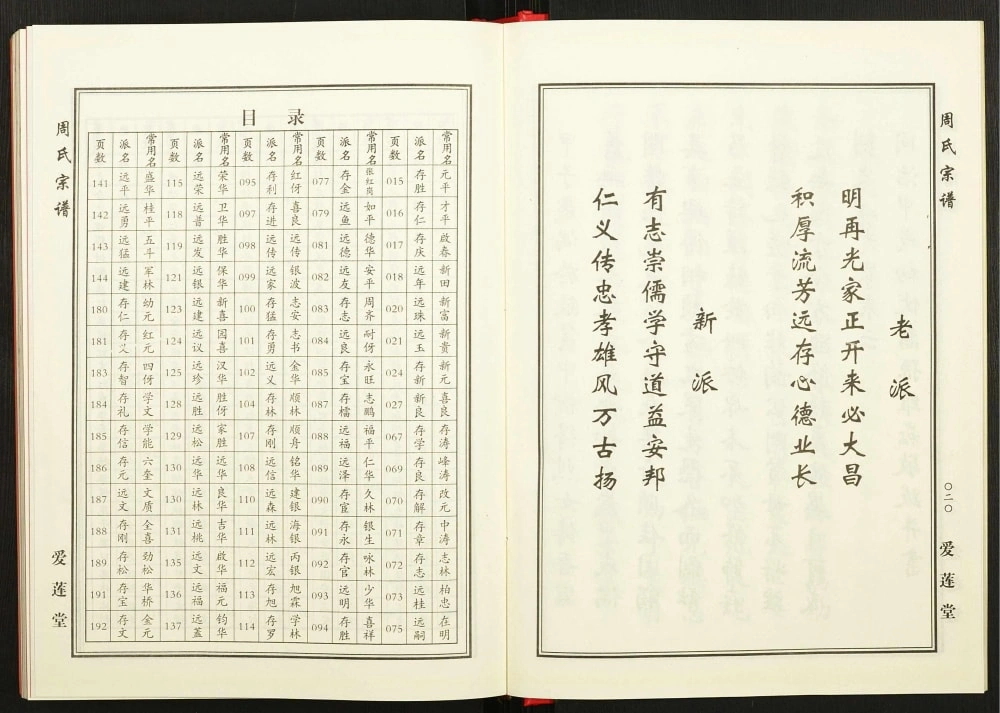 周氏宗谱
〇二〇
爱莲堂
老派
明再光家正开来必大昌
积厚流芳远存心德业长
新派
有志崇儒学守道益安邦
仁义传忠孝雄风万古扬
目录
常用名 派名 页数 常用名 派名 页数 常用名 派名 页数 常用名 派名 页数 常用名 派名 页数
元平 存胜 015 张红岗 存金 077 红伢 存利 095 荣华 远荣 115 盛华 远平 141
才平 存仁 016 如平 远鱼 079 喜良 存进 097 卫华 远普 118 桂平 远勇 142
啟春 存庆 017 德华 远德 081 远传 远传 098 胜华 远发 119 五斗 远猛 143
新田 远年 018 安平 远友 082 银波 远家 099 保华 远银 121 军林 远建 144
新富 远珠 020 周齐 存志 083 志安 存猛 100 新喜 远建 123 幼元 存仁 180
新贵 远玉 021 耐伢 远良 084 志书 存勇 101 园喜 远议 124 红元 存义 181
新元 存新 024 永旺 存宝 085 金华 远义 102 汉华 远珍 125 四伢 存智 183
喜良 新良 027 志鹏 存檑 087 顺林 存林 104 胜伢 远胜 128 学文 存礼 184
存涛 存学 067 福平 远福 088 顺舟 存刚 107 家胜 远松 129 学能 存信 185
峰涛 存良 069 仁华 远泽 089 铭华 远信 108 远华 远华 130 六奎 存元 186
改元 存解 070 久林 存宦 090 建银 远森 110 良华 远林 130 文质 远文 187
中涛 存章 071 银生 存永 091 海银 远林 111 吉华 远桃 131 全喜 存刚 188
志林 存志 072 咏林 存官 092 丙银 远宏 112 啟华 远文 135 劲松 存松 189
柏忠 远桂 073 少华 远明 093 旭霖 存旭 113 福元 远福 136 华桥 存宝 191
在明 远嗣 075 喜祥 存胜 094 学林 存罗 114 钧华 远蓋 137 金元 存文 192
周氏宗谱
爱莲堂